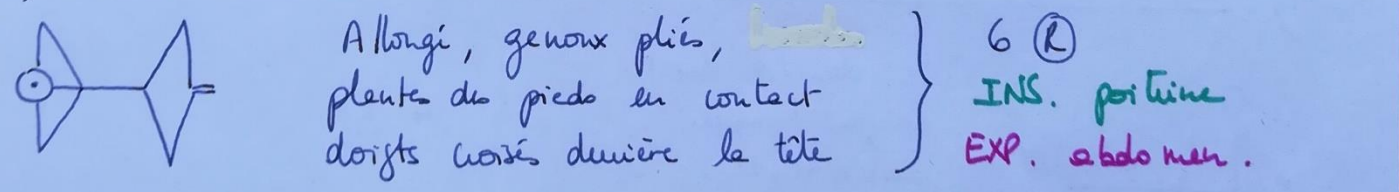 Allongé, genoux pliés,
plantes des pieds en contact
doigts croisés derrière la tête
6 R
INS. poitrine
EXP. abdomen.